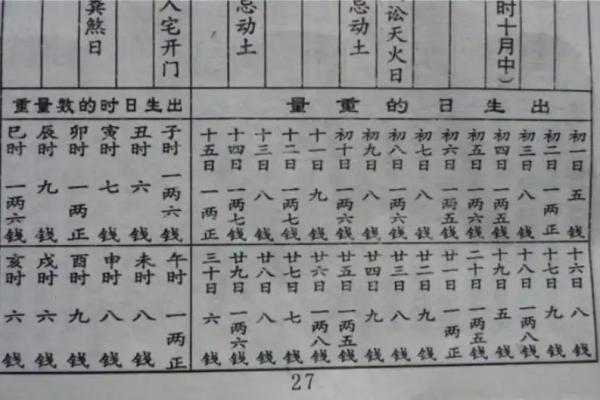 时十月中）
讼灭火日
忌动土
忌动土
入宅开门
煞日
出生日的重量
初一日 五钱
初二日 一两正
初三日 八钱
初四日 一两五钱
初五日 一两六钱
初六日 一两五钱
初七日 八钱
初八日 一两六钱
初九日 八钱
初十日 一两六钱
十一日 九钱
十二日 一两七钱
十三日 八钱
十四日 一两七钱
十五日 一两正
十六日 八钱
十七日 九钱
十八日 一两八钱
十九日 五钱
二十日 一两五钱
廿一日 一两正
廿二日 九钱
廿三日 八钱
廿四日 九钱
廿五日 一两五钱
廿六日 一两八钱
廿七日 七钱
廿八日 八钱
廿九日 一两六钱
三十日 六钱
出生日时的数量重
子时 一两六钱
丑时 六钱
寅时 七钱
卯时 一两正
辰时 九钱
巳时 一两六钱
午时 一两正
未时 八钱
申时 八钱
酉时 九钱
戌时 六钱
亥时 六钱
27